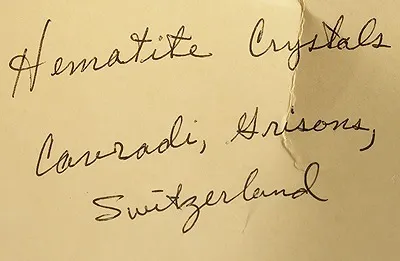 Hematite Crystals
Cavradi, Grisons,
Switzerland